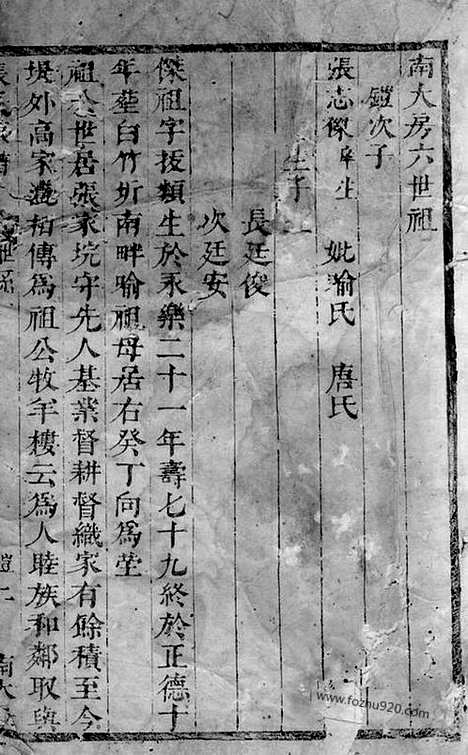 南大房六世祖
鎧次子
張志傑庠生 妣喻氏 唐氏
生子二
長廷俊
次廷安
傑祖字拔類生於永樂二十一年壽七十九終於正德十
年葬白竹圻南畔喻祖母居右癸丁向為塋
祖世居張家垸守先人基業督耕督織家有餘積至今
堤外高家相傳為祖公牧羊樓云為人睦族和鄰取與
www.fozhu920.com